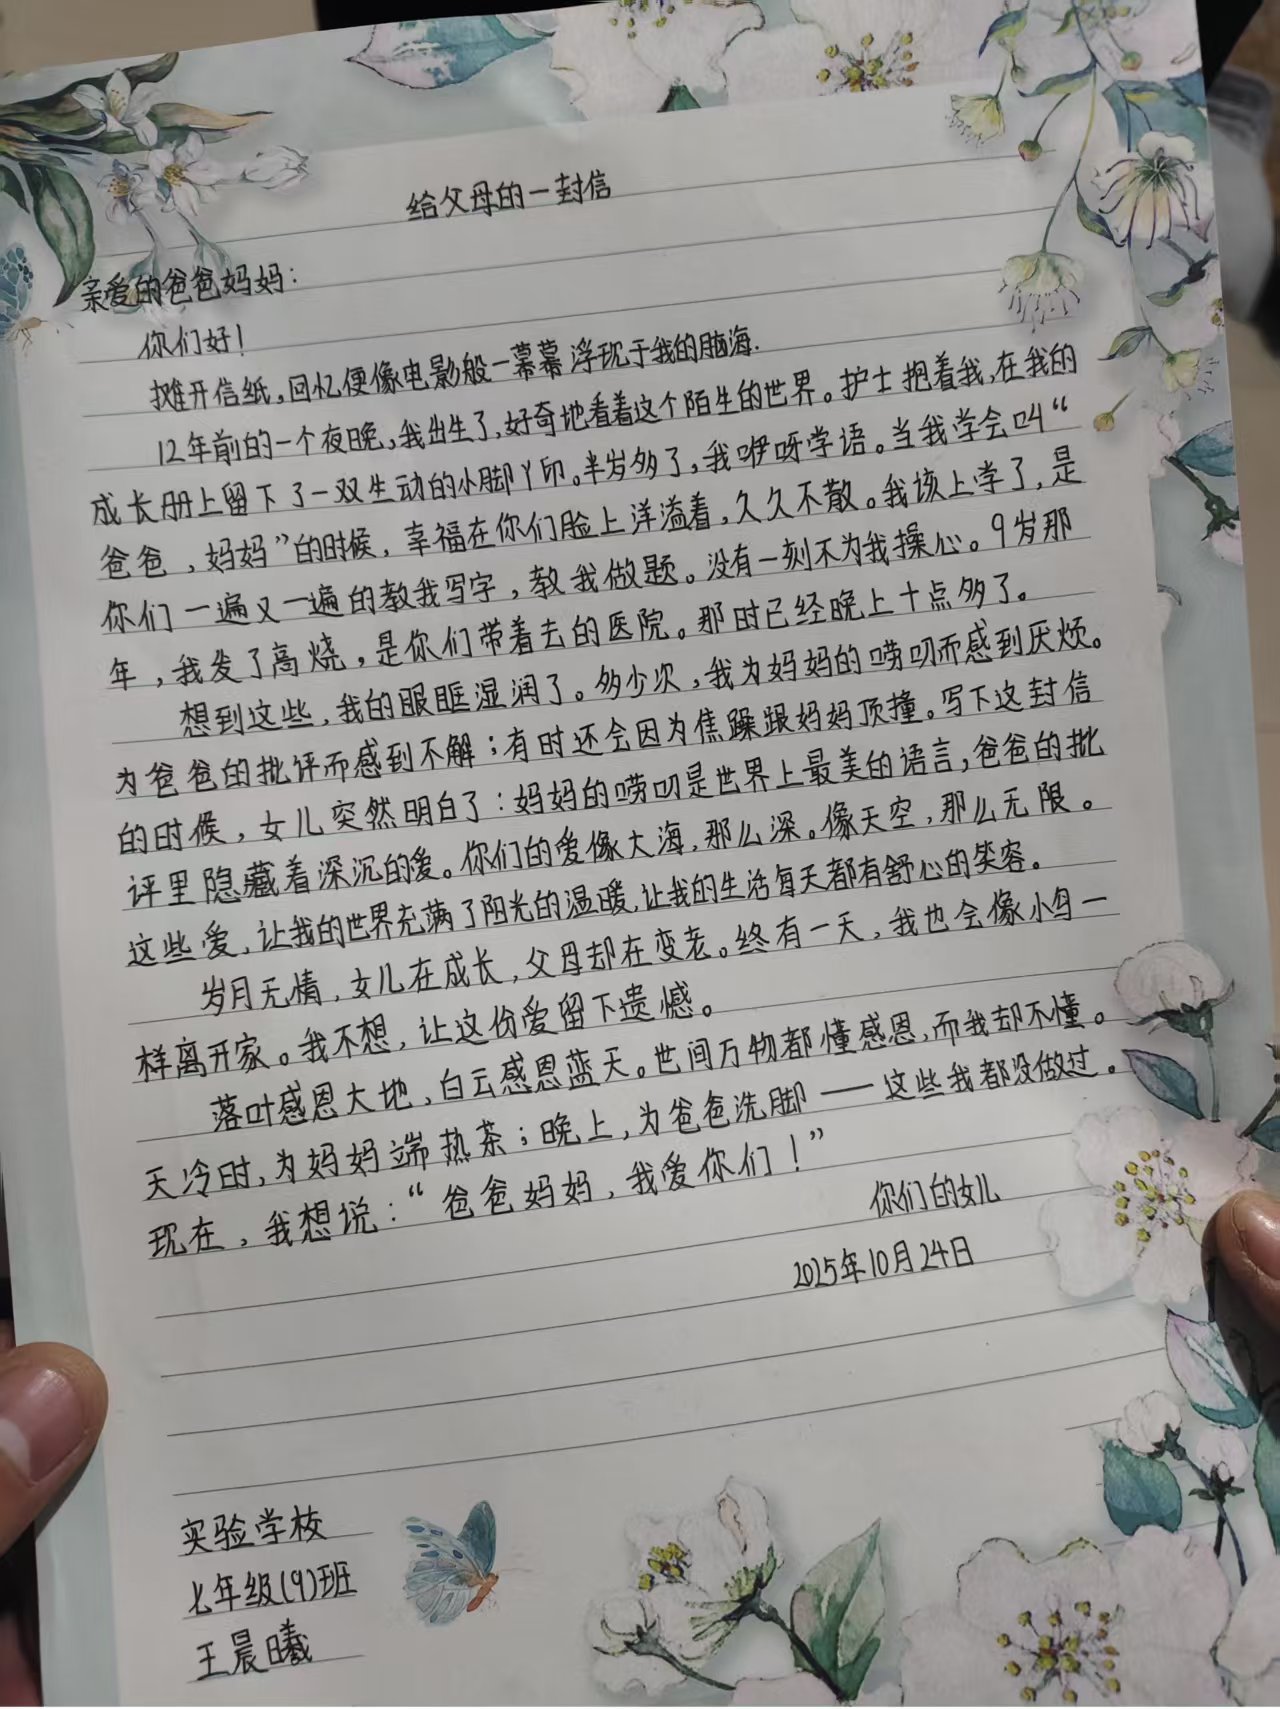 给父母的一封信
亲爱的爸爸妈妈：
你们好！
摊开信纸，回忆便像电影般一幕幕浮现于我的脑海.
12年前的一个夜晚，我出生了，好奇地看着这个陌生的世界。护士抱着我，在我的
成长册上留下了一双生动的小脚丫印。半岁多了，我咿呀学语。当我学会叫“
爸爸，妈妈”的时候，幸福在你们脸上洋溢着，久久不散。我该上学了，是
你们一遍又一遍的教我写字，教我做题。没有一刻不为我操心。9岁那
年，我发了高烧，是你们带着去的医院。那时已经晚上十点多了。
想到这些，我的眼眶湿润了。多少次，我为妈妈的唠叨而感到厌烦。
为爸爸的批评而感到不解；有时还会因为焦躁跟妈妈顶撞。写下这封信
的时候，女儿突然明白了：妈妈的唠叨是世界上最美的语言，爸爸的批
评里隐藏着深沉的爱。你们的爱像大海，那么深。像天空，那么无限。
这些爱，让我的世界充满了阳光的温暖，让我的生活每天都有舒心的笑容。
岁月无情，女儿在成长，父母却在变老。终有一天，我也会像小鸟一
样离开家。我不想，让这份爱留下遗憾。
落叶感恩大地，白云感恩蓝天。世间万物都懂感恩，而我却不懂。
天冷时，为妈妈端热茶；晚上，为爸爸洗脚——这些我都没做过。
现在，我想说：“爸爸妈妈，我爱你们！”
你们的女儿
2025年10月24日
实验学校
七年级(9)班
王晨曦